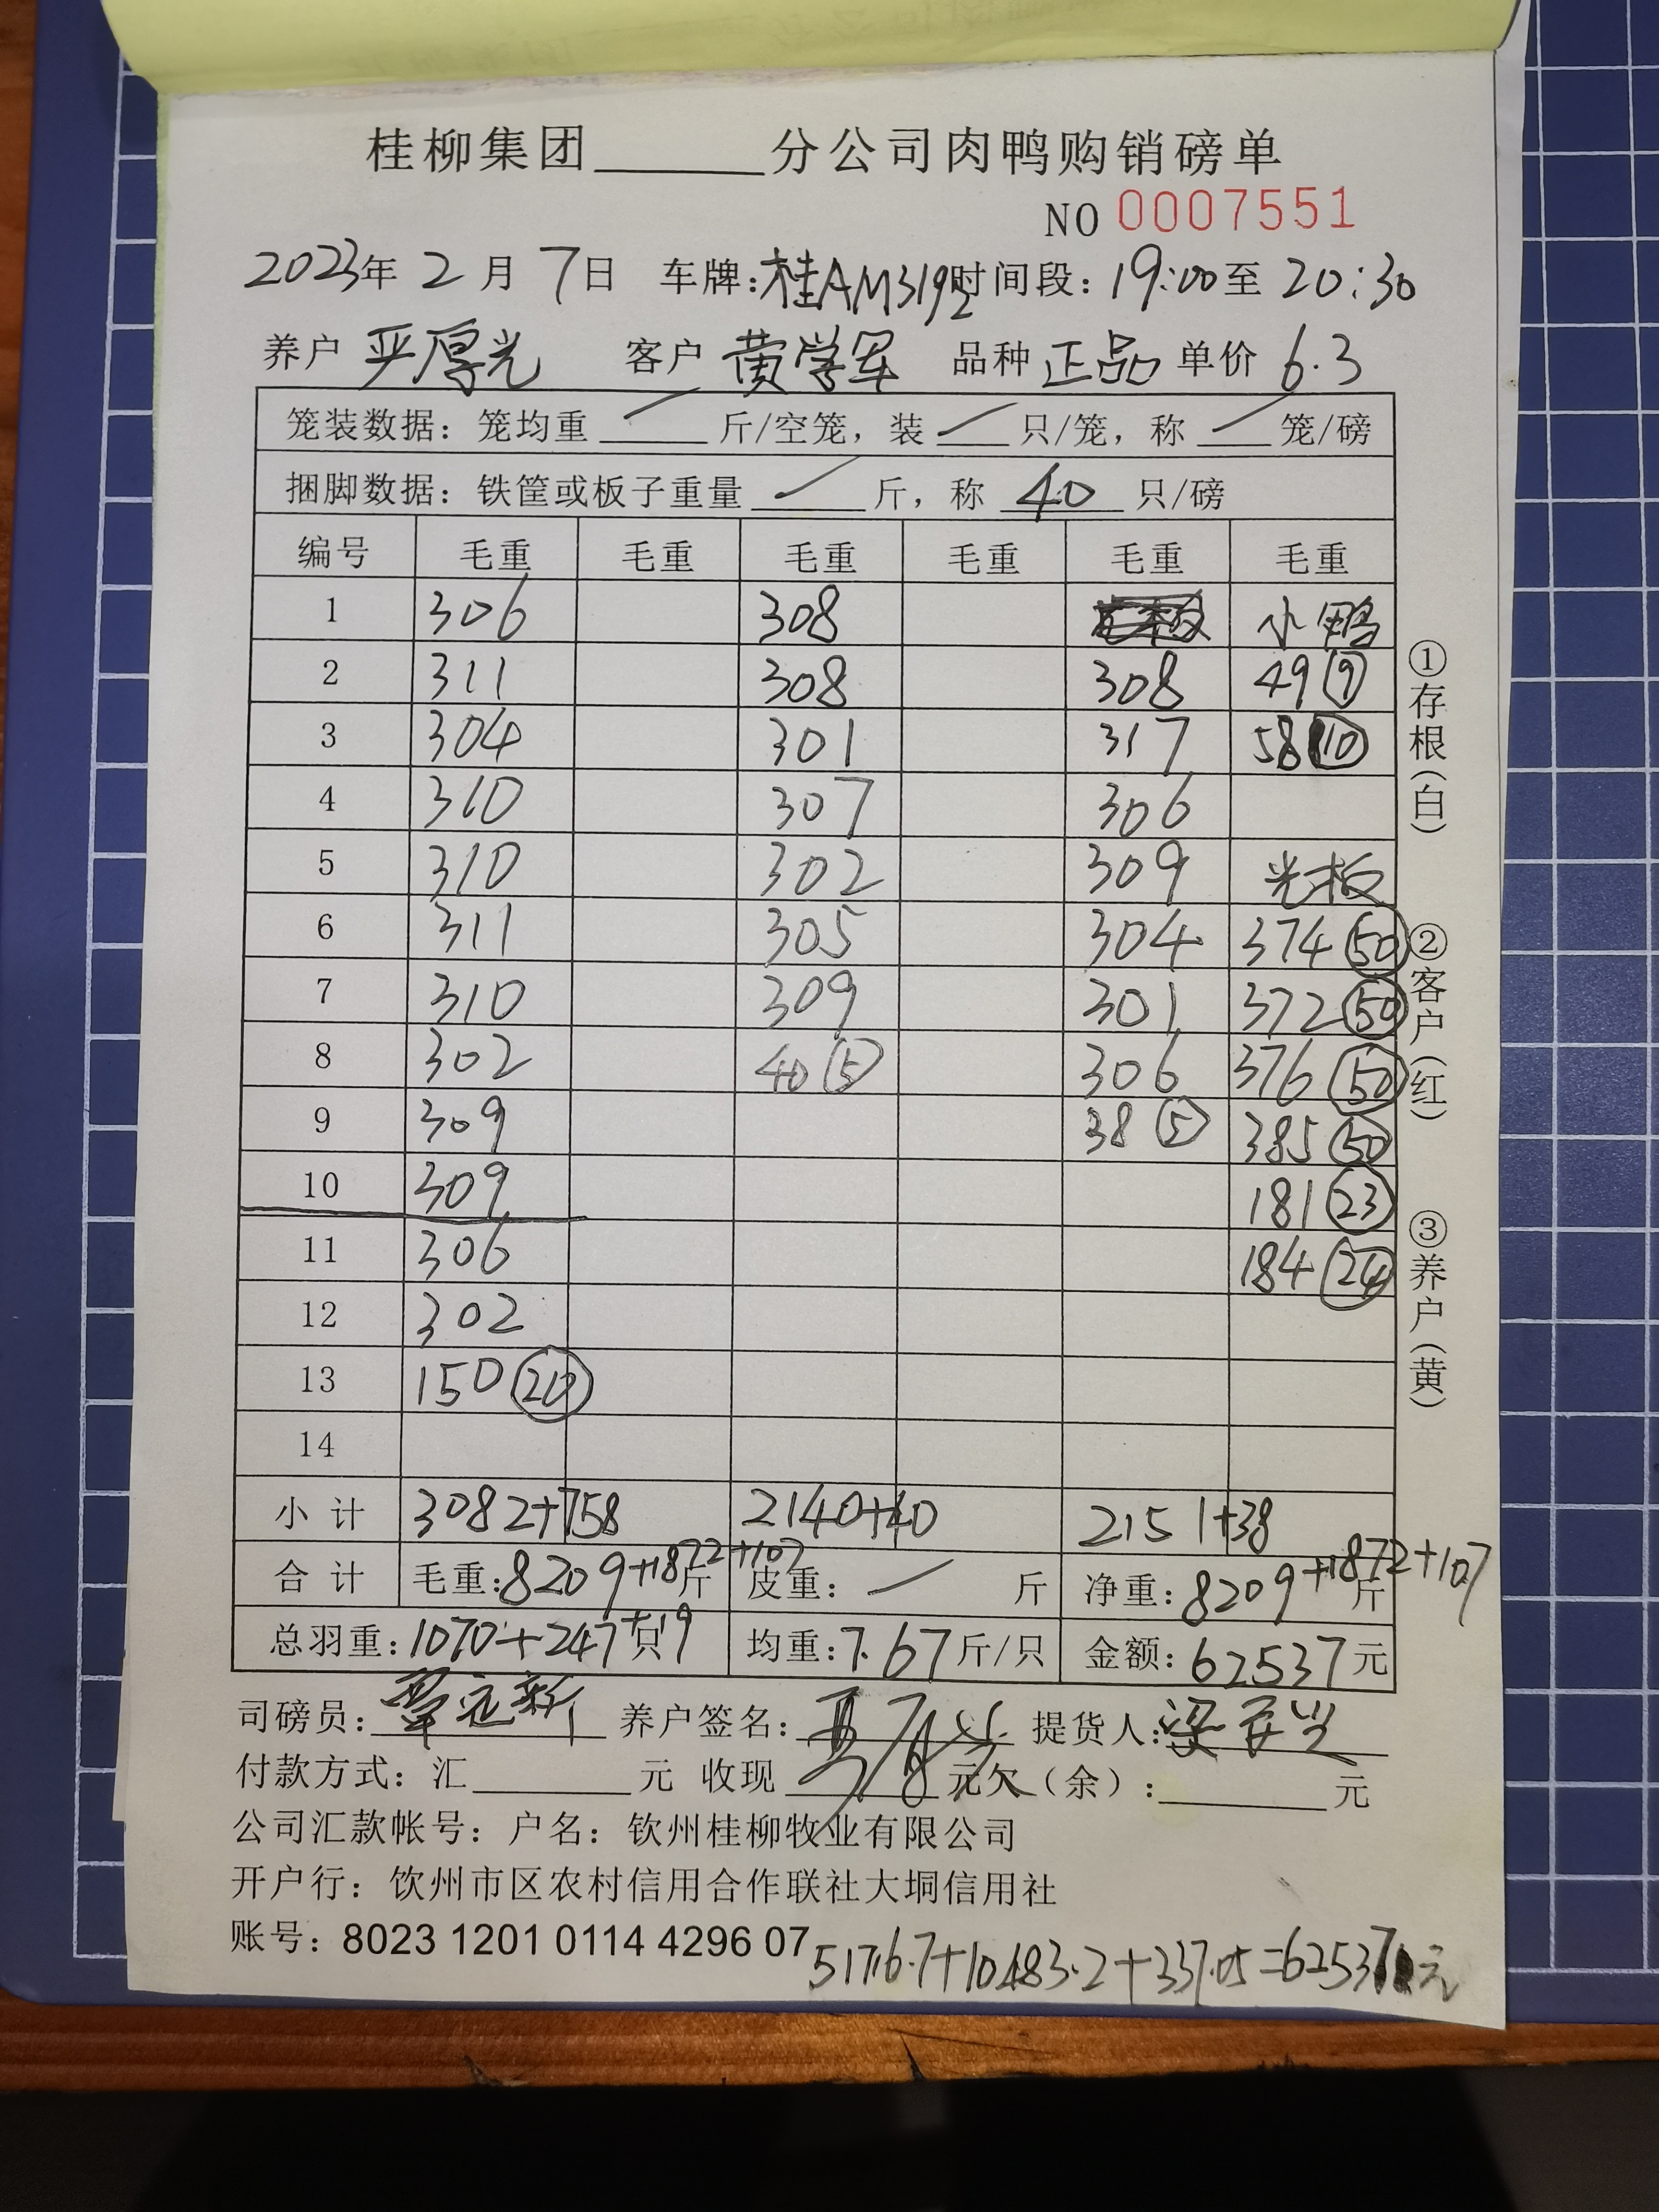 桂柳集团______分公司肉鸭购销磅单
NO 0007551
2023年 2 月 7日 车牌:桂AM3192 时间段: 19:00至 20:30
养户 严厚光 客户 黄学军 品种 正品 单价 6.3
笼装数据: 笼均重 / 斤/空笼, 装 / 只/笼, 称 / 笼/磅
捆脚数据: 铁筐或板子重量 / 斤, 称 40 只/磅
编号 毛重 毛重 毛重 毛重 毛重 毛重
1 306 308 小鸭
2 311 308 308 49 ⑨
3 304 301 317 58 ⑩
4 310 307 306
5 310 302 309 光板
6 311 305 304 374 ㊿
7 310 309 301 372 ㊿
8 302 40 ⑤ 306 376 ㊿
9 309 38 ⑤ 385 ㊿
10 309 181 ㉓
11 306 184 ㉔
12 302
13 150 ⑳
14
小计 3082+758 2140+40 2151+38
合计 毛重:8209+1872+107斤 皮重: / 斤 净重: 8209+1872+107斤
总羽重:1070+247+19只 均重:7.67斤/只 金额: 62537元
司磅员: 覃远新 养户签名: 提货人:梁
付款方式: 汇______元 收现______元欠(余):______元
公司汇款帐号: 户名: 钦州桂柳牧业有限公司
开户行: 饮州市区农村信用合作联社大垌信用社
账号: 8023 1201 0114 4296 07
51716.7+10483.2+337.05=62537元
①存根(白)
②客户(红)
③养户(黄)